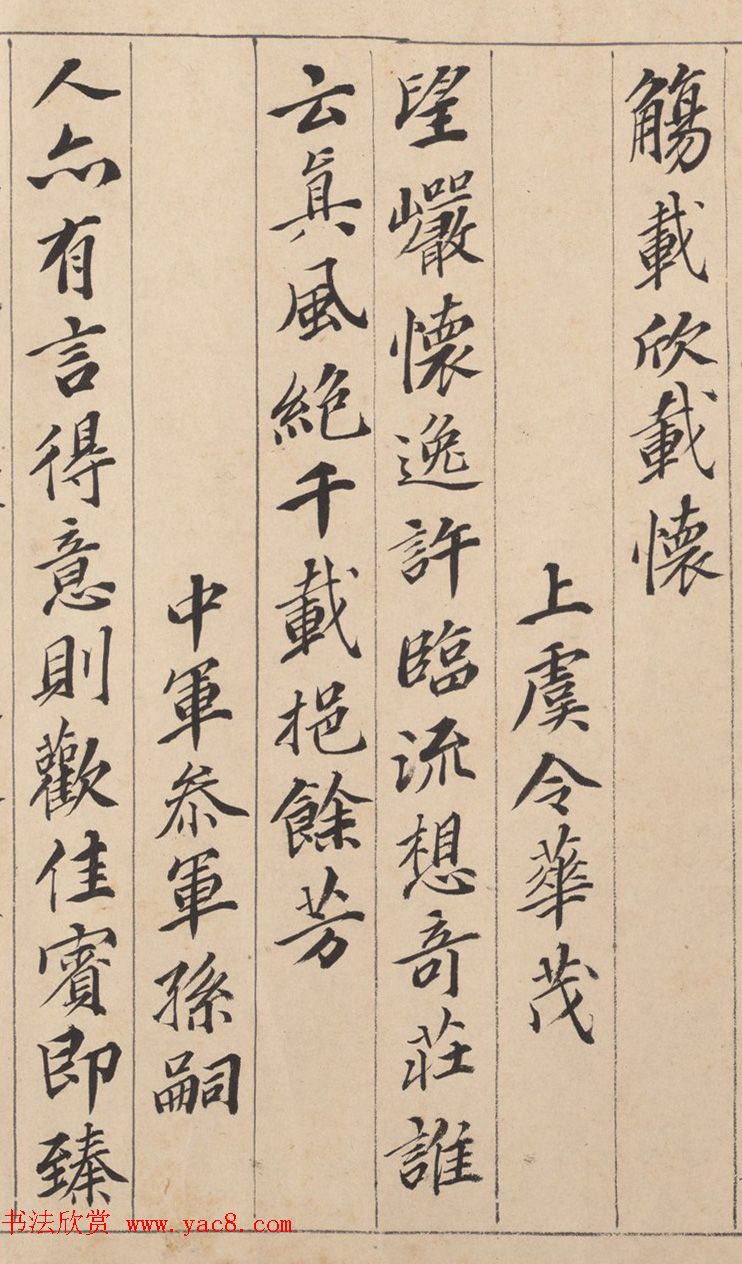 觴載欣載懷
上虞令華茂
望巖懷逸許臨流想奇莊誰
云眞風絶千載挹餘芳
中軍叅軍孫嗣
人亦有言得意則歡佳賓即臻
书法欣赏 www.yac8.com